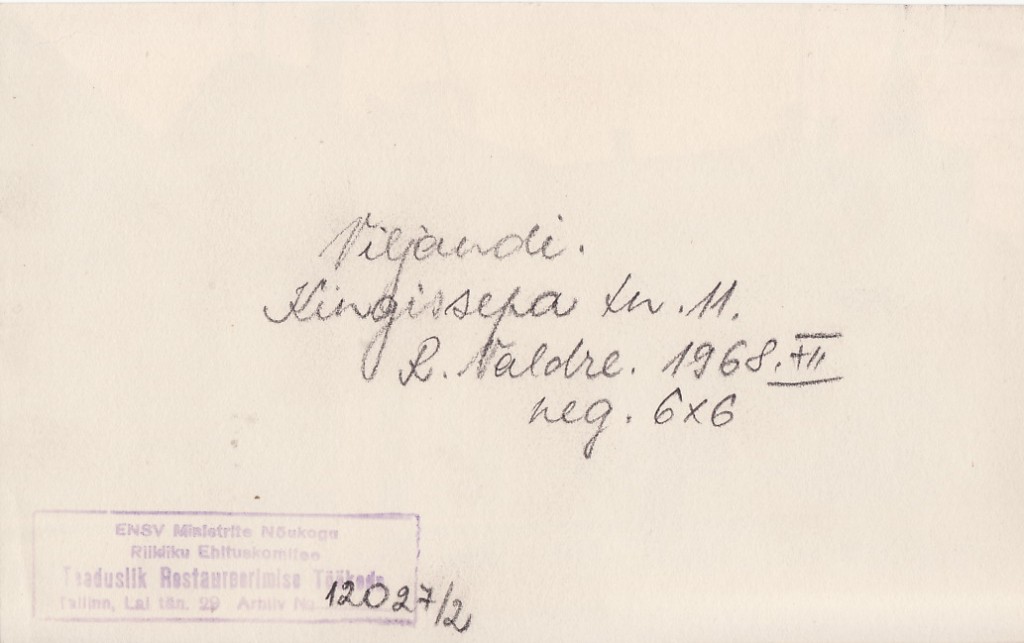 Viljandi.
Kingissepa tn. 11.
R. Valdre. 1968. XII
neg. 6x6
ENSV Ministrite Nõukogu
Riikliku Ehituskomitee
Teaduslik Restaureerimise Töökoda
Tallinn, Lai tän. 29 Arhiiv No 12027/2